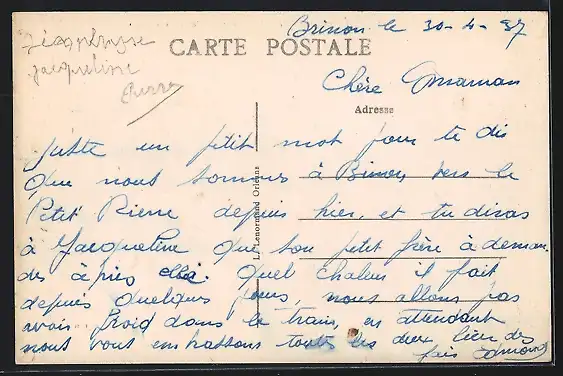 Brinon le 30-4-37
Jacqueline
Pierre
CARTE POSTALE
Chère Maman
Adresse
juste un petit mot pour te dis
que nous sommes à Brinon, vers le
Petit Pierre depuis hier, et tu diras
à Jacqueline que son petit frère à deman-
der après elle. Quel chaleur il fait
depuis quelques jours, nous allons pas
avoir froid dans le train, en attendant
nous vous embrassons toutes les deux bien des
fois
L. Lenormand Orléans